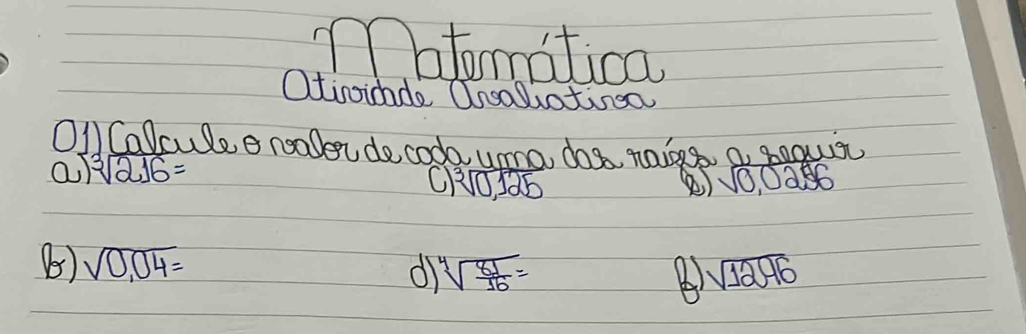 Matemática
Atividade Avaliativa
01) Calcule o valor de cada uma das raízes a seguir
a) ∛216 = c) ∛0,125 e) √0,0256
b) √0,04 = d) ∜81/16 = f) √1296